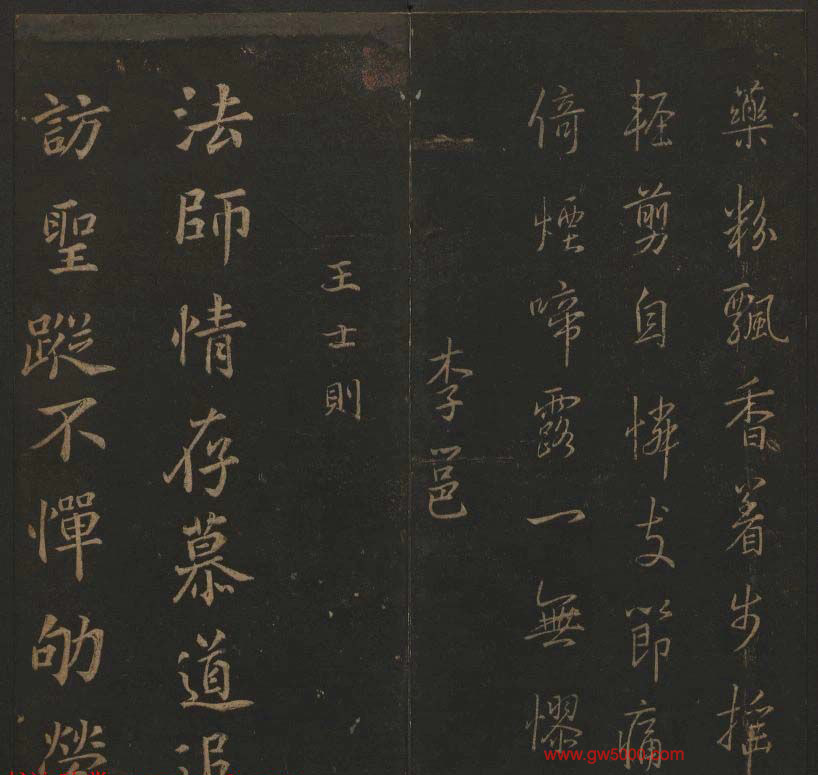 藥粉飄香著步摇
輕剪自憐支節痛
倚煙啼露一無憀
李邕
王士則
法師情存慕道追
訪聖蹤不憚劬勞
www.gw5000.com